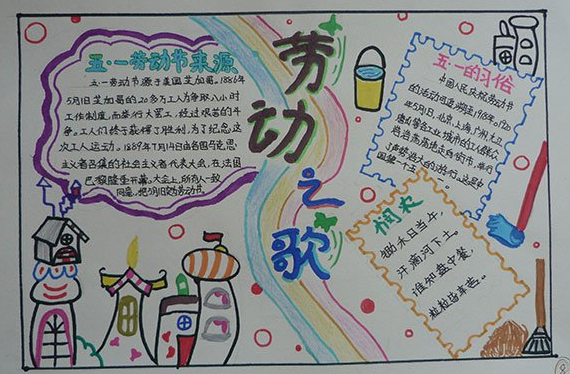 劳动之歌
五·一劳动节来源
五·一劳动节源于美国芝加哥。1886年
5月1日芝加哥的20多万工人为争取八小时
工作制度,而举行大罢工,经过艰苦的斗
争,工人们终于获得了胜利,为了纪念这
次工人运动。1889年7月14日由各国马克思
主义者召集的社会主义者代表大会,在法国
巴黎隆重开幕,大会上,所有人一致
同意,把5月1日定为劳动节。
五·一的习俗
中国人民庆祝劳动节
的活动可追溯至1918年。1920
年5月1日,北京,上海,广州,九江
唐山等各工业城市的工人群众
浩浩荡荡地走向街市,举行
了声势浩大的游行,这是中
国第一个五一。
悯农
锄禾日当午,
汗滴河下土。
谁知盘中餐,
粒粒皆辛苦。
8